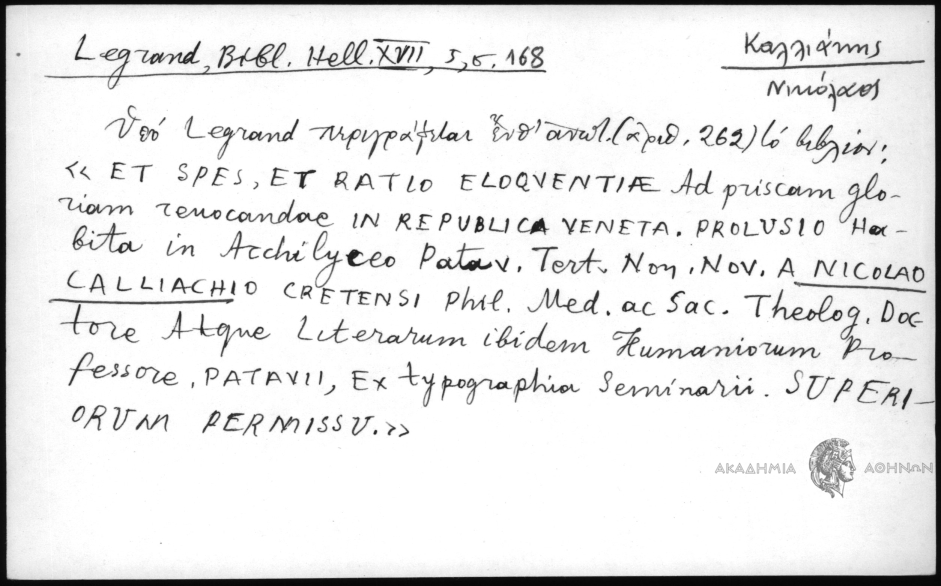 Legrand, Bibl. Hell. XVII, 5, σ. 168
Καλλιάκης
Νικόλαος
Ὑπό Legrand περιγράφεται ἔνθ' ἀνωτ. (ἀριθ. 262) τό βιβλίον:
« ET SPES, ET RATIO ELOQVENTIÆ Ad priscam glo-
riam reuocandae IN REPUBLICA VENETA. PROLUSIO Ha-
bita in Archilyceo Patav. Tert. Non. Nov. A NICOLAO
CALLIACHIO CRETENSI Phil. Med. ac Sac. Theolog. Doc
tore Atque Literarum ibidem Humaniorum Pro-
fessore. PATAVII, Ex typographia Seminarii. SUPERI-
ORUM PERMISSU.»
ΑΚΑΔΗΜΙΑ ΑΘΗΝΩΝ